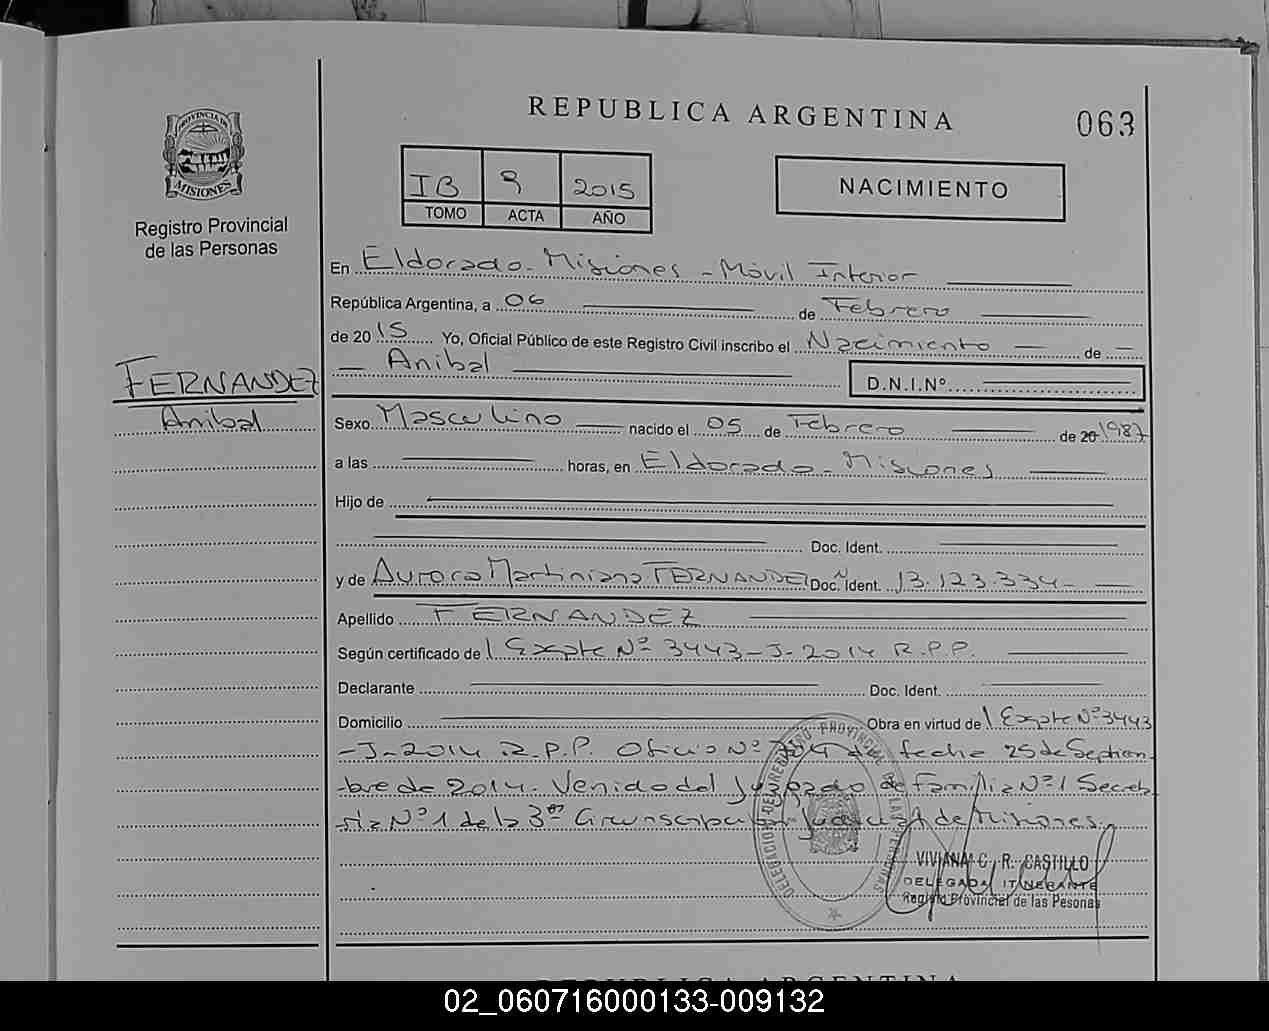 REPUBLICA ARGENTINA
063
PROVINCIA DE
MISIONES
Registro Provincial
de las Personas
IB 9 2015
TOMO ACTA AÑO
NACIMIENTO
En Eldorado - Misiones - Móvil Interior
República Argentina, a 06 de Febrero
de 2015 Yo, Oficial Público de este Registro Civil inscribo el Nacimiento — de —
— Anibal D.N.I.Nº
FERNANDEZ
Anibal
Sexo Masculino nacido el 05 de Febrero de 20 1987
a las horas, en Eldorado - Misiones
Hijo de
Doc. Ident.
y de Aurora Martiniana FERNANDEZ Doc. Ident. 13.123.334-
Apellido FERNANDEZ
Según certificado de Expte Nº 3443-J-2014 R.P.P.
Declarante Doc. Ident.
Domicilio Obra en virtud de Expte Nº 3443
-J-2014 R.P.P. Oficio Nº fecha 25 de Septiem-
bre de 2014. Venido del Juzgado de Familia Nº 1 Secreta
ria Nº 1 de la 3ª Circunscripción Judicial de Misiones.
DELEGACION DEL REGISTRO PROVINCIAL DE LAS PERSONAS
VIVIANA C. R. CASTILLO
DELEGADA ITINERANTE
Registro Provincial de las Pesonas
REPUBLICA ARGENTINA
02_060716000133-009132